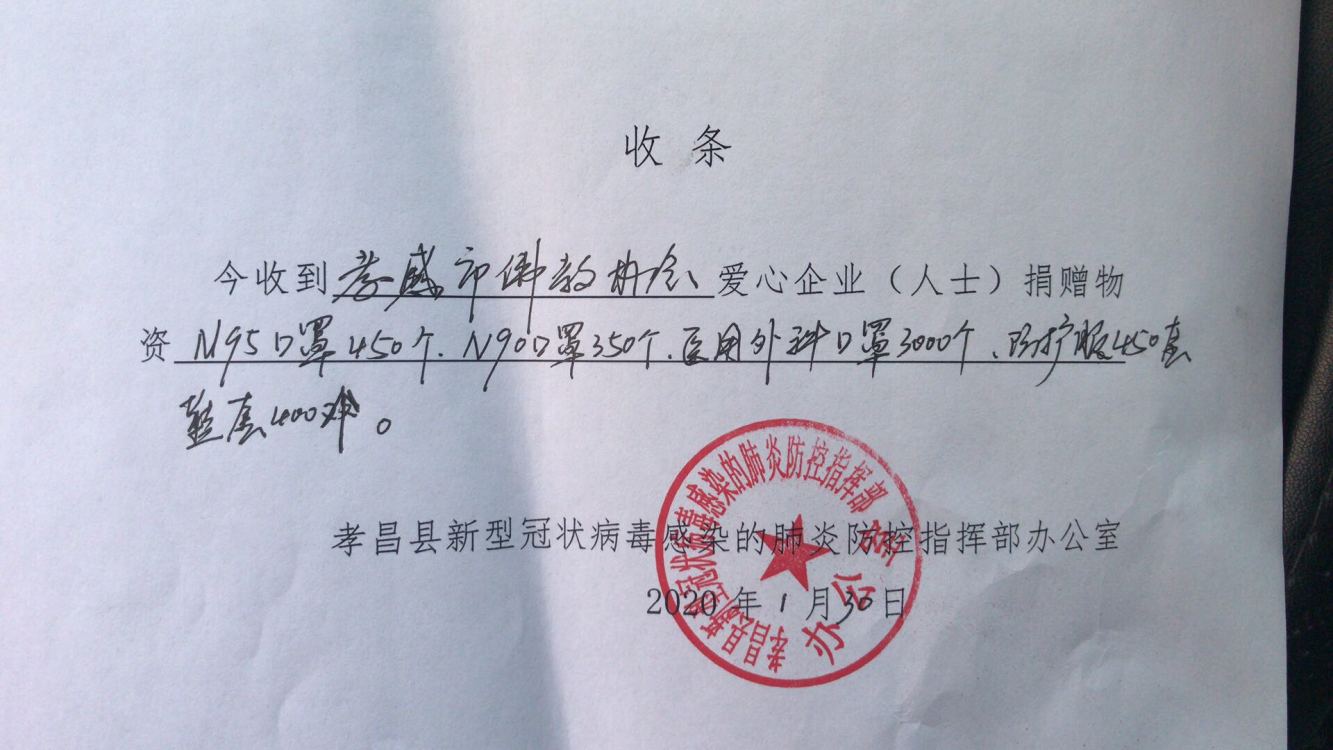 收条
今收到孝感市佛教协会爱心企业（人士）捐赠物
资N95口罩450个、N90口罩350个、医用外科口罩3000个、防护服450套
鞋套400双。
孝昌县新型冠状病毒感染的肺炎防控指挥部办公室
2020年1月30日
孝昌县新型冠状病毒感染的肺炎防控指挥部
办公室